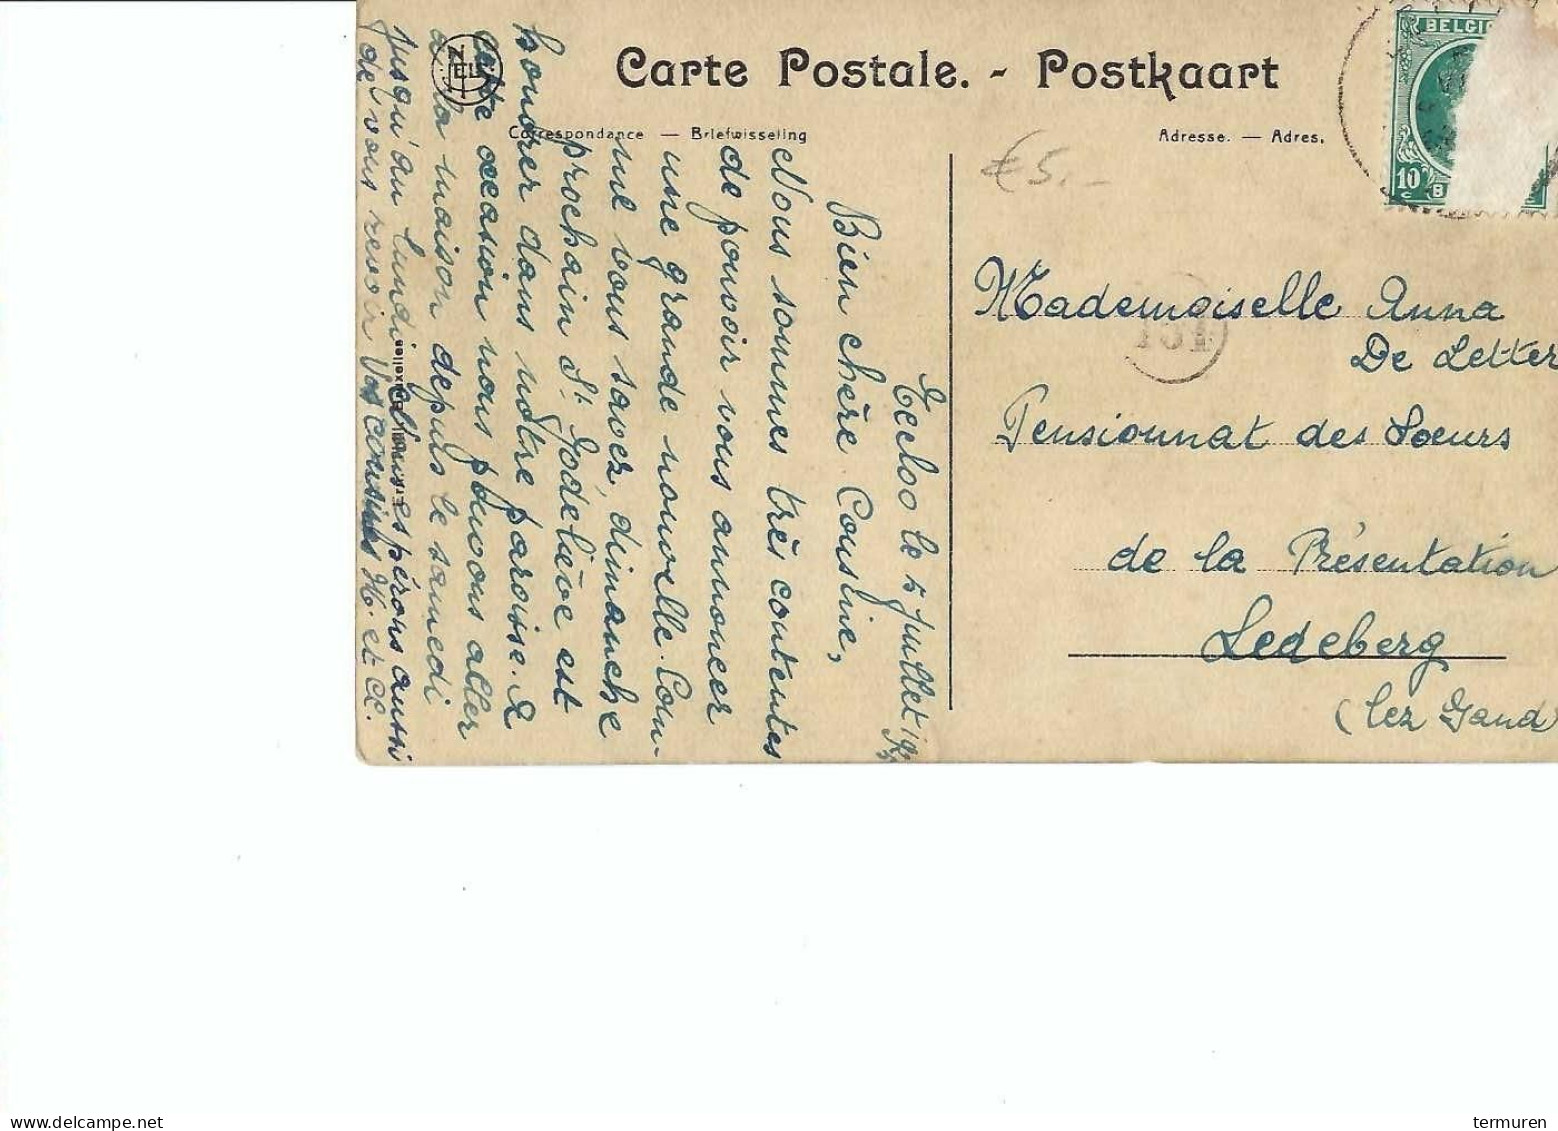 Carte Postale. - Postkaart
Correspondance — Briefwisseling
Adresse. — Adres.
€ 5.-
BELGI
10
c
B
NELS
Eecloo le 5 Juillet 19
Bien chère Cousine,
Nous sommes très contentes
de pouvoir vous annoncer
une grande nouvelle. Com-
me vous savez, dimanche
prochain St Godelieve est
dans nôtre paroisse. A
cette occasion nous pouvons aller
à la maison depuis le samedi
jusqu'au lundi. Nous espérons aussi
de vous revoir Vos cousines M. et Cl.
Mademoiselle Anna
De Letter
Pensionnat des Soeurs
de la Présentation
Ledeberg
(lez Gand)
termuren